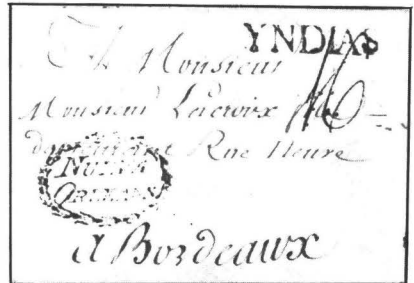 YNDIAS
A Monsieur
Monsieur Lacroix
demeurant Rue Neuve
NUEVA
ORLEANS
a Bordeaux